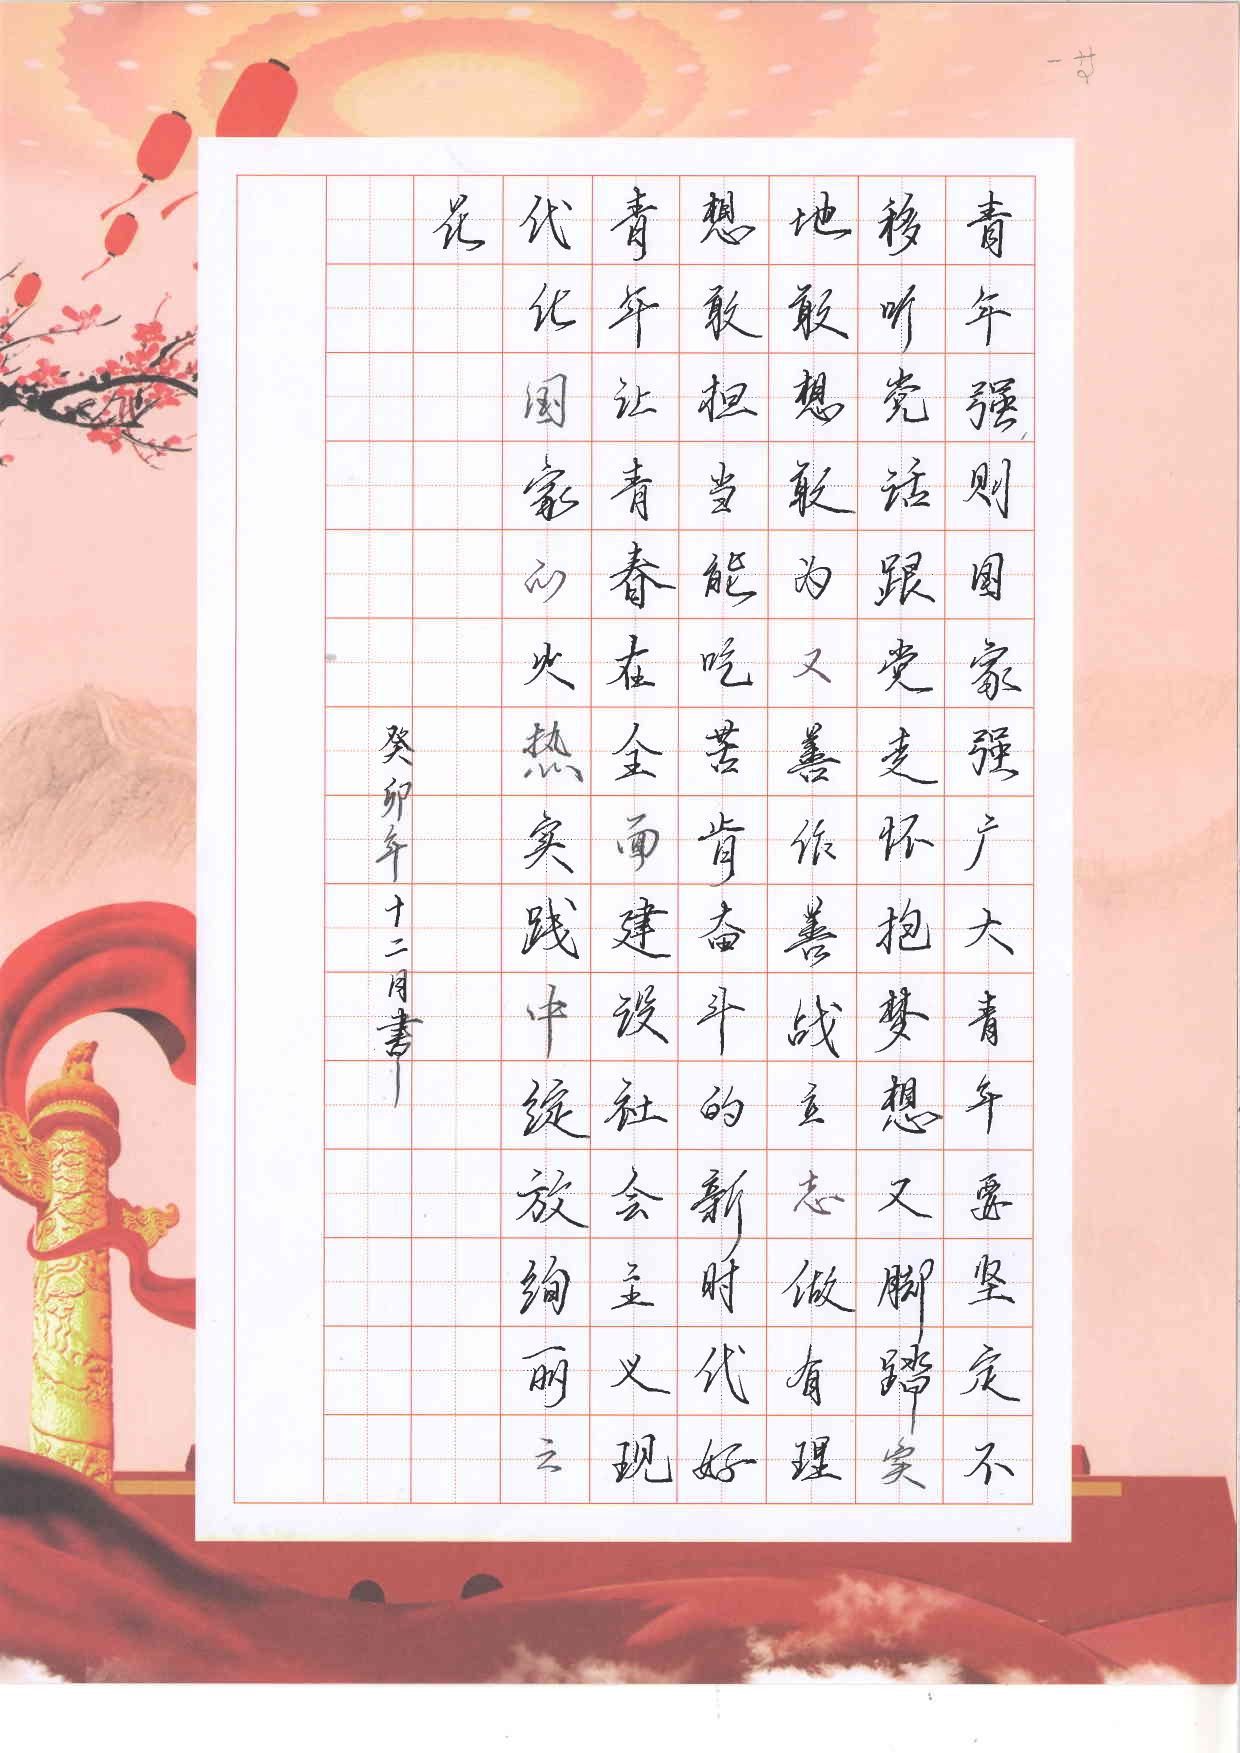 青年强则国家强广大青年要坚定不
移听党话跟党走怀抱梦想又脚踏实
地敢想敢为又善作善战立志做有理
想敢担当能吃苦肯奋斗的新时代好
青年让青春在全面建设社会主义现
代化国家的火热实践中绽放绚丽云
花
癸卯年十二月書